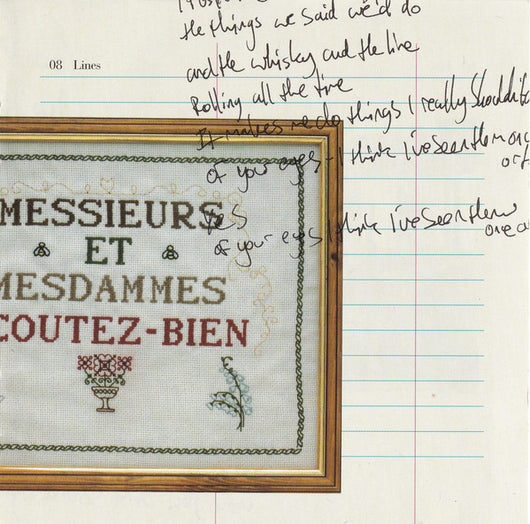 the things we said we'd do
08 Lines
and the whisky and the line
Rolling all the time
It makes me do things I really shouldn't
of your eyes - I think I've seen them once
or
Yes
of your eyes I think I've seen them
one or
MESSIEURS
ET
MESDAMMES
COUTEZ-BIEN